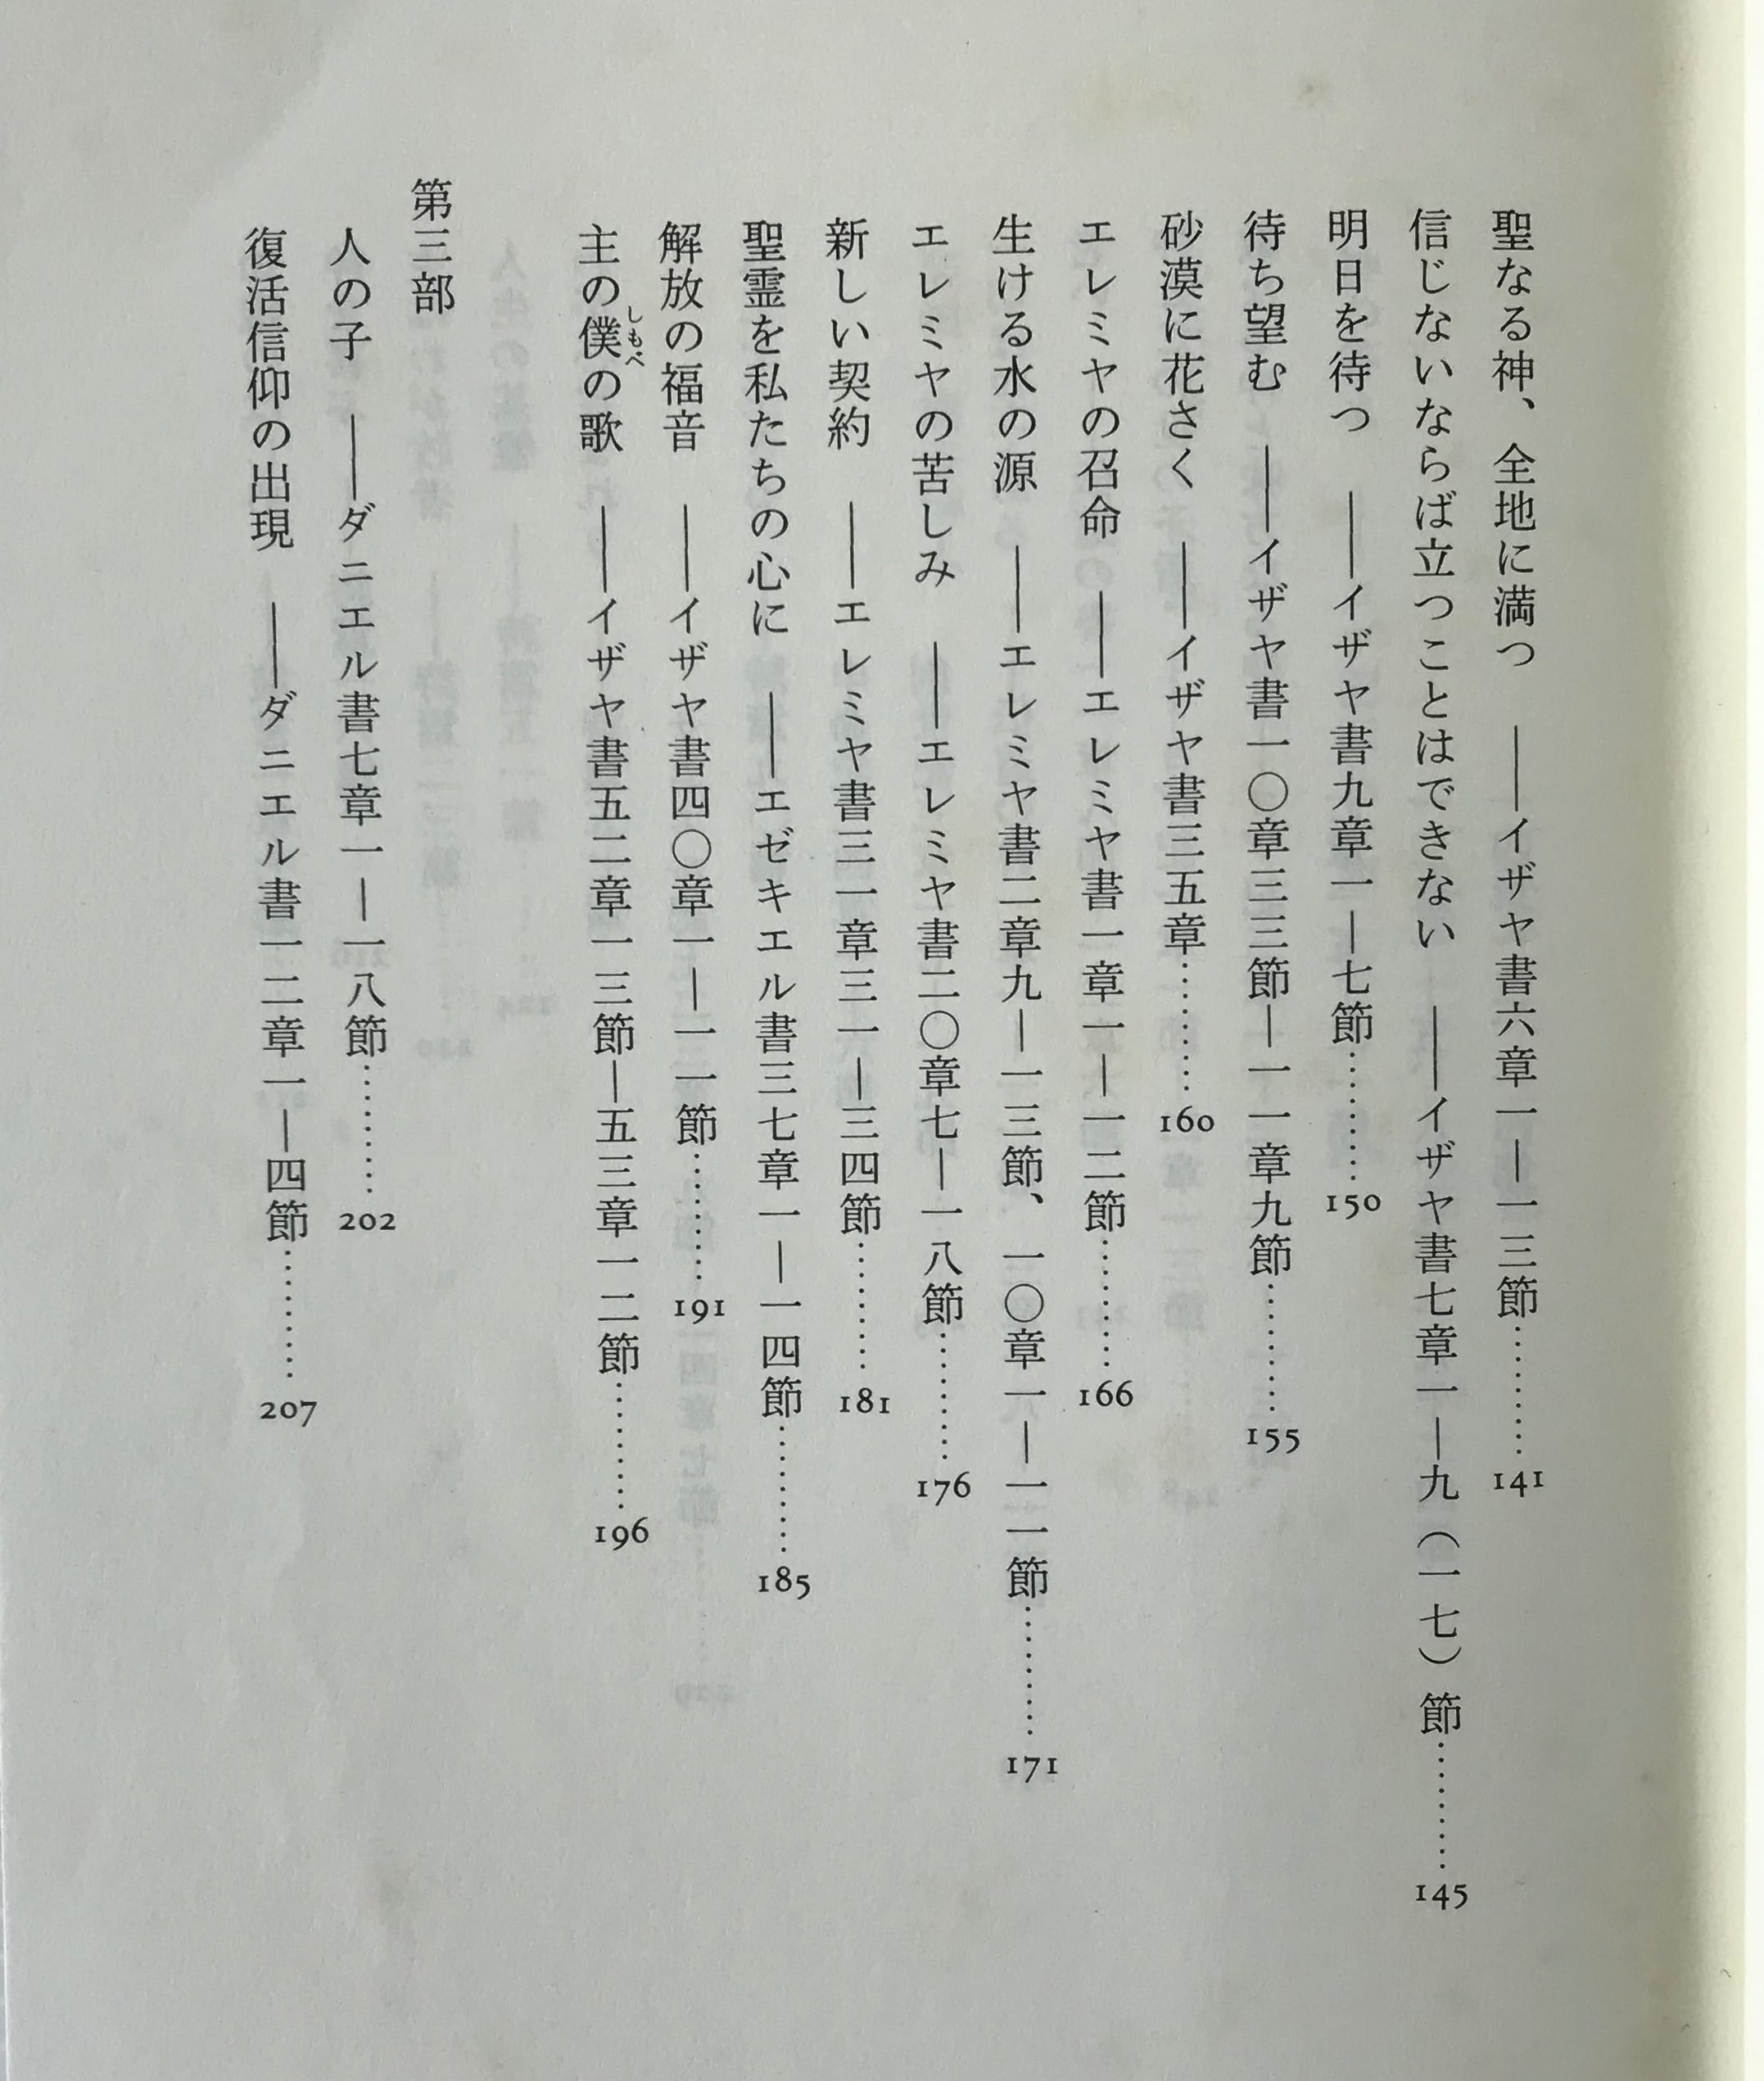 聖なる神、全地に満つ ――イザヤ書六章一―一三節………141
信じないならば立つことはできない ――イザヤ書七章一―九（一七）節………145
明日を待つ ――イザヤ書九章一―七節………150
待ち望む ――イザヤ書一〇章三三節―一一章九節………155
砂漠に花さく ――イザヤ書三五章………160
エレミヤの召命 ――エレミヤ書一章一―一二節………166
生ける水の源 ――エレミヤ書二章九―一三節、一〇章一―一一節………171
エレミヤの苦しみ ――エレミヤ書二〇章七―一八節………176
新しい契約 ――エレミヤ書三一章三一―三四節………181
聖霊を私たちの心に ――エゼキエル書三七章一―一四節………185
解放の福音 ――イザヤ書四〇章一―一一節………191
主の僕の歌 ――イザヤ書五二章一三節―五三章一二節………196
しもべ
第三部
人の子 ――ダニエル書七章一―一八節………202
復活信仰の出現 ――ダニエル書一二章一―四節………207